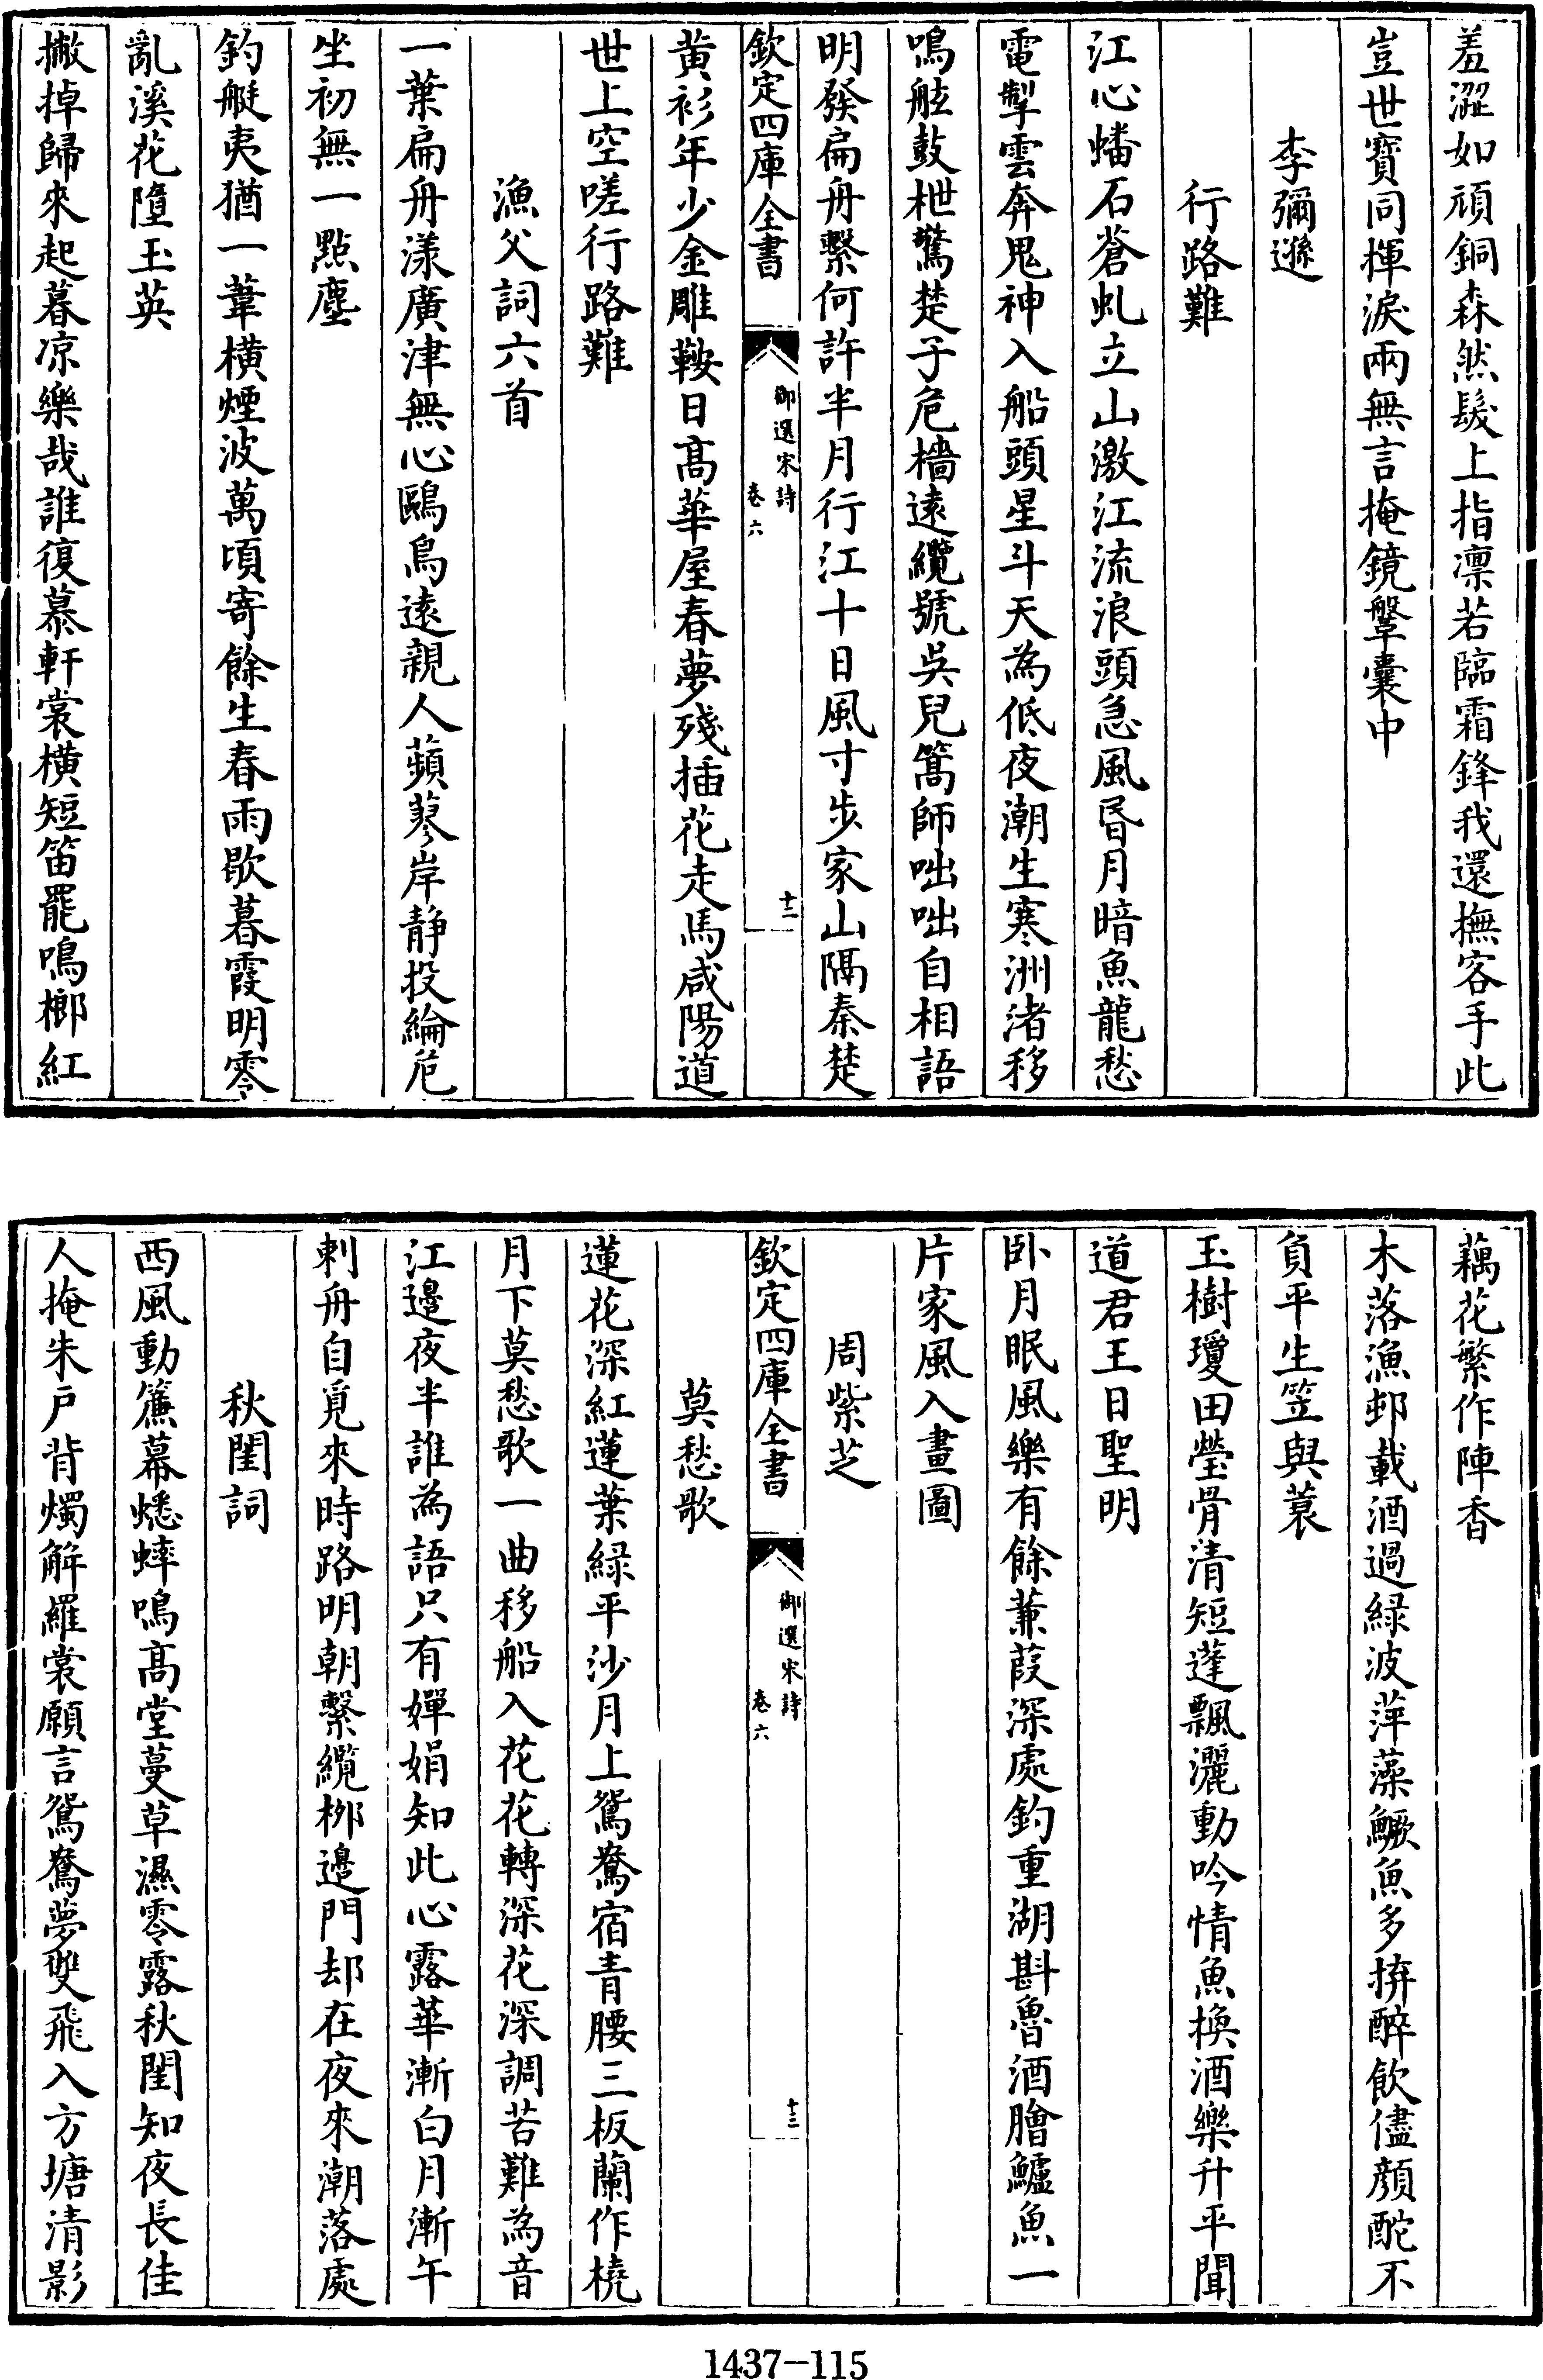 羞澀如頑銅森然髮上指凛若臨霜鋒我還撫客手此
豈世寳同揮淚兩無言掩鏡鞶囊中
李彌遜
行路難
江心蟠石蒼虬立山激江流浪頭急風昏月暗魚龍愁
電掣雲奔鬼神入船頭星斗天為低夜潮生寒洲渚移
鳴舷鼓枻驚楚子危檣遠纜號吳兒篙師咄咄自相語
明發扁舟繫何許半月行江十日風寸步家山隔秦楚
欽定四庫全書
御選宋詩
卷六
十二
黄衫年少金雕鞍日髙華屋春夢殘插花走馬咸陽道
世上空嗟行路難
漁父詞六首
一葉扁舟漾廣津無心鷗鳥遠親人蘋蓼岸静投綸危
坐初無一點塵
釣艇夷猶一葦橫煙波萬頃寄餘生春雨歇暮霞明零
亂溪花墮玉英
撇掉歸來起暮凉樂哉誰復慕軒裳橫短笛罷鳴榔紅
藕花繁作陣香
木落漁邨載酒過緑波萍藻鱖魚多拚醉飲儘顔酡不
負平生笠與蓑
玉樹瓊田瑩骨清短蓬飄灑動吟情魚換酒樂升平聞
道君王日聖明
卧月眠風樂有餘蒹葭深處釣重湖斟魯酒膾鱸魚一
片家風入畫圖
周紫芝
欽定四庫全書
御選宋詩
卷六
十三
莫愁歌
蓮花深紅蓮葉緑平沙月上鴛鴦宿青腰三板蘭作橈
月下莫愁歌一曲移船入花花轉深花深調苦難為音
江邊夜半誰為語只有嬋娟知此心露華漸白月漸午
刺舟自覓來時路明朝繫纜栁邊門却在夜來潮落處
秋閨詞
西風動簾幕蟋蟀鳴髙堂蔓草濕零露秋閨知夜長佳
人掩朱戸背燭解羅裳願言鴛鴦夢雙飛入方塘清影
1437-115